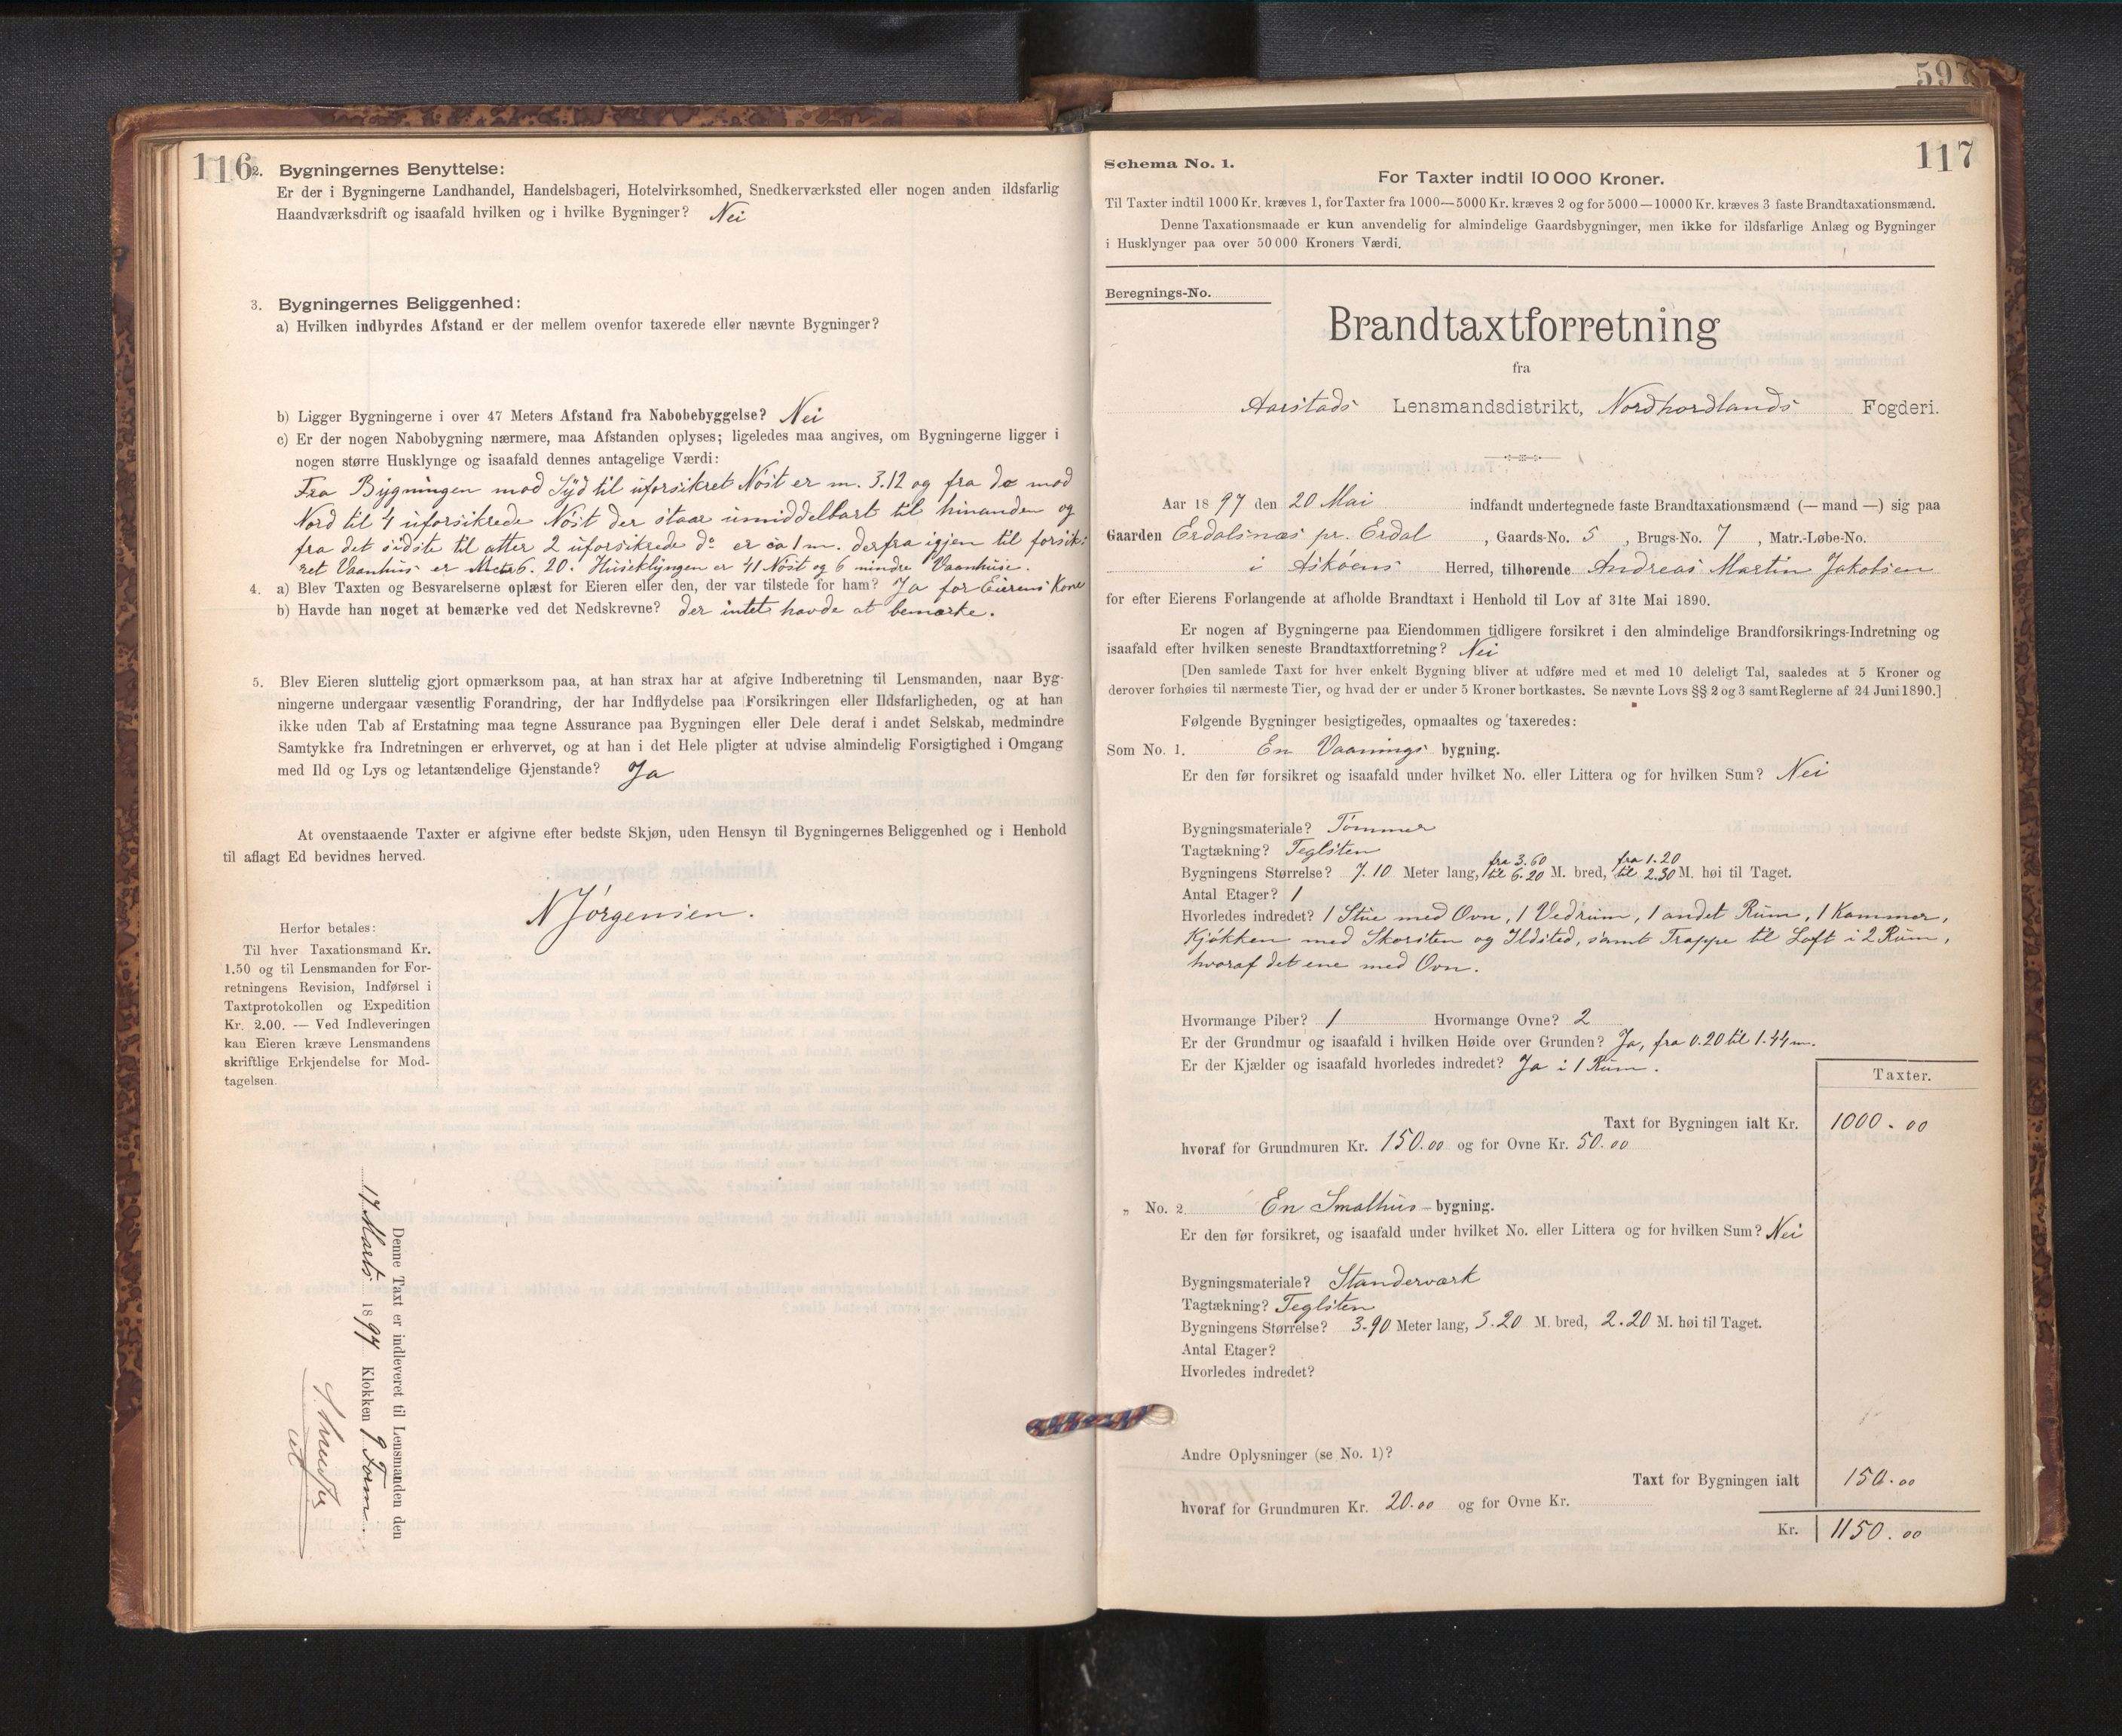 116
2. Bygningernes Benyttelse:
Er der i Bygningerne Landhandel, Handelsbageri, Hotelvirksomhed, Snedkerværksted eller nogen anden ildsfarlig
Haandværksdrift og isaafald hvilken og i hvilke Bygninger? Nei
3. Bygningernes Beliggenhed:
a) Hvilken indbyrdes Afstand er der mellem ovenfor taxerede eller nævnte Bygninger?
b) Ligger Bygningerne i over 47 Meters Afstand fra Nabobebyggelse? Nei
c) Er der nogen Nabobygning nærmere, maa Afstanden oplyses; ligeledes maa angives, om Bygningerne ligger i
nogen større Husklynge og isaafald dennes antagelige Værdi:
Fra Bygningen mod Syd til uforsikret Nøst er m. 3.12 og fra do mod
Nord til 4 uforsikrede Nøst der staar umiddelbart til hinanden og
fra det sidste til atter 2 uforsikrede do er ca 1 m. derfra igjen til forsik-
ret Vaanhus er 6.20. Huseklyngen er 41 Nøst og 6 mindre Vaanhuse.
4. a) Blev Taxten og Besvarelserne oplæst for Eieren eller den, der var tilstede for ham? Ja for Eierens Kone
b) Havde han noget at bemærke ved det Nedskrevne? der intet havde at bemærke.
5. Blev Eieren sluttelig gjort opmærksom paa, at han strax har at afgive Indberetning til Lensmanden, naar Byg-
ningerne undergaar væsentlig Forandring, der har Indflydelse paa Forsikringen eller Ildsfarligheden, og at han
ikke uden Tab af Erstatning maa tegne Assurance paa Bygningen eller Dele deraf i andet Selskab, medmindre
Samtykke fra Indretningen er erhvervet, og at han i det Hele pligter at udvise almindelig Forsigtighed i Omgang
med Ild og Lys og letantændelige Gjenstande? Ja
At ovenstaaende Taxter er afgivne efter bedste Skjøn, uden Hensyn til Bygningernes Beliggenhed og i Henhold
til aflagt Ed bevidnes herved.
N Jørgensen.
Herfor betales:
Til hver Taxationsmand Kr.
1.50 og til Lensmanden for For-
retningens Revision, Indførsel i
Taxtprotokollen og Expedition
Kr. 2.00. — Ved Indleveringen
kan Eieren kræve Lensmandens
skriftlige Erkjendelse for Mod-
tagelsen.
Denne Taxt er indleveret til Lensmanden den
17 Marts 1897 Klokken 9 Form.
597
117
Schema No. 1.
For Taxter indtil 10 000 Kroner.
Til Taxter indtil 1000 Kr. kræves 1, for Taxter fra 1000—5000 Kr. kræves 2 og for 5000—10000 Kr. kræves 3 faste Brandtaxationsmænd.
Denne Taxationsmaade er kun anvendelig for almindelige Gaardsbygninger, men ikke for ildsfarlige Anlæg og Bygninger
i Husklynger paa over 50 000 Kroners Værdi.
Beregnings-No.
Brandtaxtforretning
fra
Aarstads Lensmandsdistrikt, Nordhordlands Fogderi.
Aar 1897 den 20 Mai indfandt undertegnede faste Brandtaxationsmænd (— mand —) sig paa
Gaarden Erdalsnæs pr. Erdal, Gaards-No. 5, Brugs-No. 7, Matr.-Løbe-No.
i Askøens Herred, tilhørende Andreas Martin Jakobsen
for efter Eierens Forlangende at afholde Brandtaxt i Henhold til Lov af 31te Mai 1890.
Er nogen af Bygningerne paa Eiendommen tidligere forsikret i den almindelige Brandforsikrings-Indretning og
isaafald efter hvilken seneste Brandtaxtforretning? Nei
[Den samlede Taxt for hver enkelt Bygning bliver at udføre med et med 10 deleligt Tal, saaledes at 5 Kroner og
derover forhøies til nærmeste Tier, og hvad der er under 5 Kroner bortkastes. Se nævnte Lovs §§ 2 og 3 samt Reglerne af 24 Juni 1890.]
Følgende Bygninger besigtigedes, opmaaltes og taxeredes:
Som No. 1. En Vaanings bygning.
Er den før forsikret og isaafald under hvilket No. eller Littera og for hvilken Sum? Nei
Bygningsmateriale? Tømmer
Tagtækning? Teglsten
Bygningens Størrelse? 7.10 Meter lang, fra 3.60 til 6.20 M. bred, fra 1.20 til 2.30 M. høi til Taget.
Antal Etager? 1
Hvorledes indredet? 1 Stue med Ovn, 1 Vedrum, 1 andet Rum, 1 Kammer,
Kjøkken med Skorsten og Ildsted, samt Trappe til Loft i 2 Rum,
hvoraf det ene med Ovn.
Hvormange Piber? 1 Hvormange Ovne? 2
Er der Grundmur og isaafald i hvilken Høide over Grunden? Ja, fra 0.20 til 1.44 m.
Er der Kjælder og isaafald hvorledes indredet? Ja i 1 Rum.
Taxter.
Taxt for Bygningen ialt Kr. 1000.00
hvoraf for Grundmuren Kr. 150.00 og for Ovne Kr. 50.00
„ No. 2. En Smalhus-bygning.
Er den før forsikret, og isaafald under hvilket No. eller Littera og for hvilken Sum? Nei
Bygningsmateriale? Standerværk
Tagtækning? Teglsten
Bygningens Størrelse? 3.90 Meter lang, 3.20 M. bred, 2.20 M. høi til Taget.
Antal Etager?
Hvorledes indredet?
Andre Oplysninger (se No. 1)?
Taxt for Bygningen ialt 150.00
hvoraf for Grundmuren Kr. 20.00 og for Ovne Kr.
Kr. 1150.00